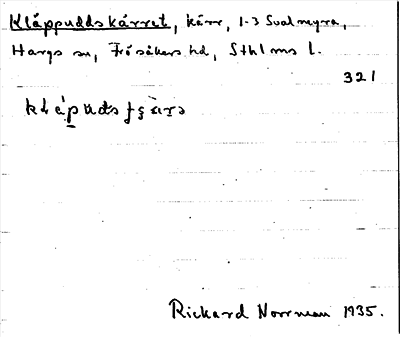 Kläppuddskärret, kärr, 1-3 Svalmyra,
Hargs sn, Frösåkers hd, Sthlms l.
321
Richard Norrman 1935.